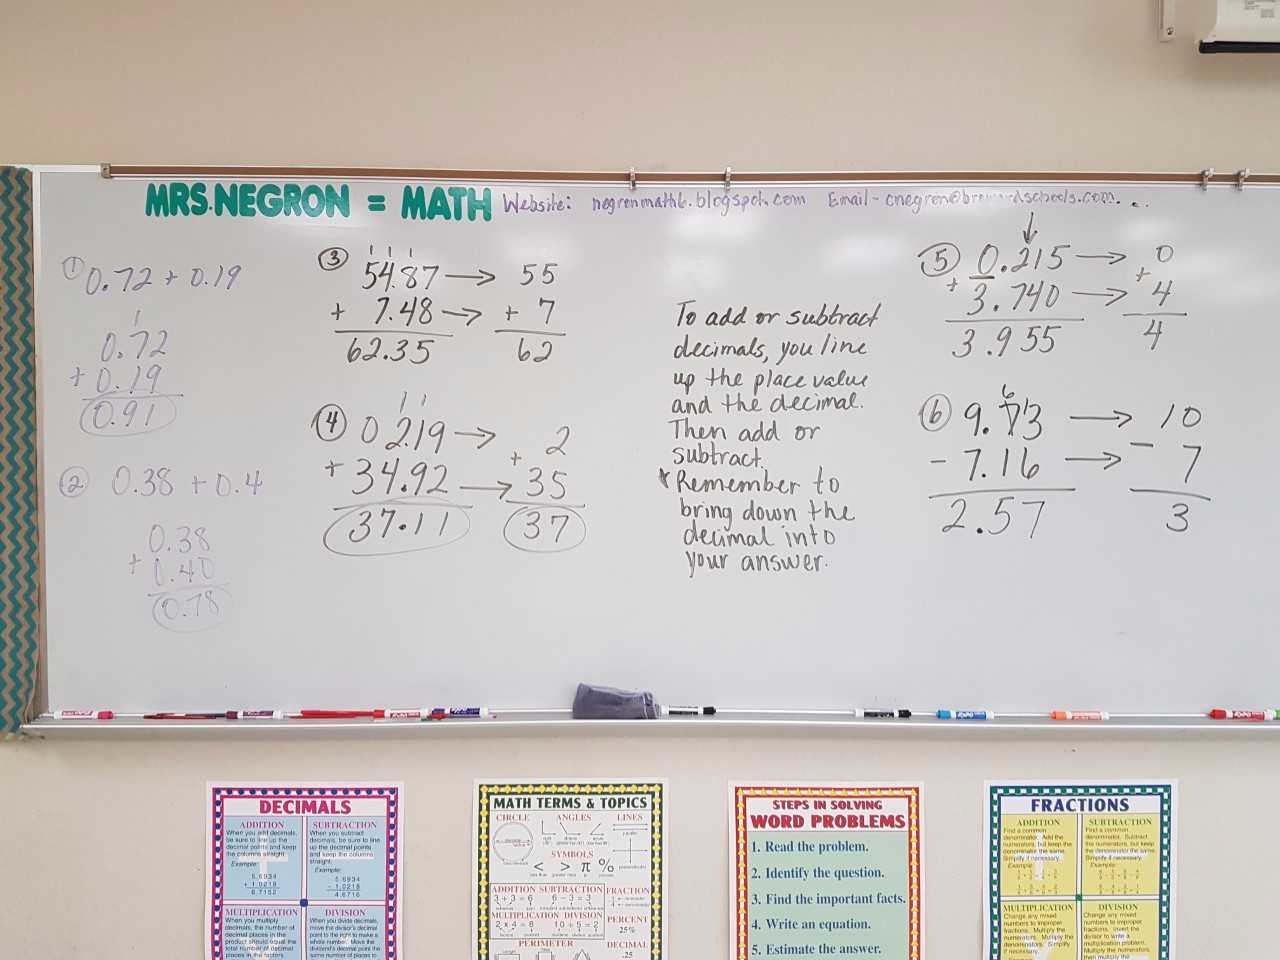 MRS.NEGRON = MATH Website: negronmath6.blogspot.com Email-
① 0.72 + 0.19
1
0.72
+ 0.19
0.91
② 0.38 + 0.4
0.38
+ 0.40
0.78
③
1 1 1
54.87 → 55
+ 7.48 → + 7
62.35 62
④
1 1
02.19 → 2
+ 34.92 → + 35
37.11 37
To add or subtract
decimals, you line
up the place value
and the decimal.
Then add or
subtract.
* Remember to
bring down the
decimal into
your answer.
⑤ 0.215 → 0
+ 3.740 → + 4
3.955 4
⑥
6 1
9.73 → 10
- 7.16 → - 7
2.57 3
DECIMALS
ADDITION
When you add decimals,
be sure to line up the
decimal points and keep
the columns straight.
Example:
5.6934
+ 1.0218
6.7152
SUBTRACTION
When you subtract
decimals, be sure to line
up the decimal points
and keep the columns
straight.
Example:
5.6934
- 1.0218
4.6716
MULTIPLICATION
When you multiply
decimals, the number of
decimal places in the
product should equal the
total number of decimal
places in the factors.
DIVISION
When you divide decimals,
move the divisor's decimal
point to the right to make a
whole number. Move the
dividend's decimal point the
same number of places to
MATH TERMS & TOPICS
CIRCLE ANGLES LINES
SYMBOLS
< > π %
ADDITION SUBTRACTION FRACTION
3 + 3 = 6 6 - 3 = 3
MULTIPLICATION DIVISION PERCENT
2 x 4 = 8 10 ÷ 5 = 2 25%
PERIMETER DECIMAL
.25
STEPS IN SOLVING
WORD PROBLEMS
1. Read the problem.
2. Identify the question.
3. Find the important facts.
4. Write an equation.
5. Estimate the answer.
FRACTIONS
ADDITION
Find a common
denominator. Add the
numerators, but keep the
denominator the same.
Simplify if necessary.
Example:
SUBTRACTION
Find a common
denominator. Subtract
the numerators, but keep
the denominator the same.
Simplify if necessary.
Example:
MULTIPLICATION
Change any mixed
numbers to improper
fractions. Multiply the
numerators. Multiply the
denominators. Simplify
if necessary.
DIVISION
Change any mixed
numbers to improper
fractions. Invert the
divisor to write a
multiplication problem.
Multiply the numerators,
then multiply the